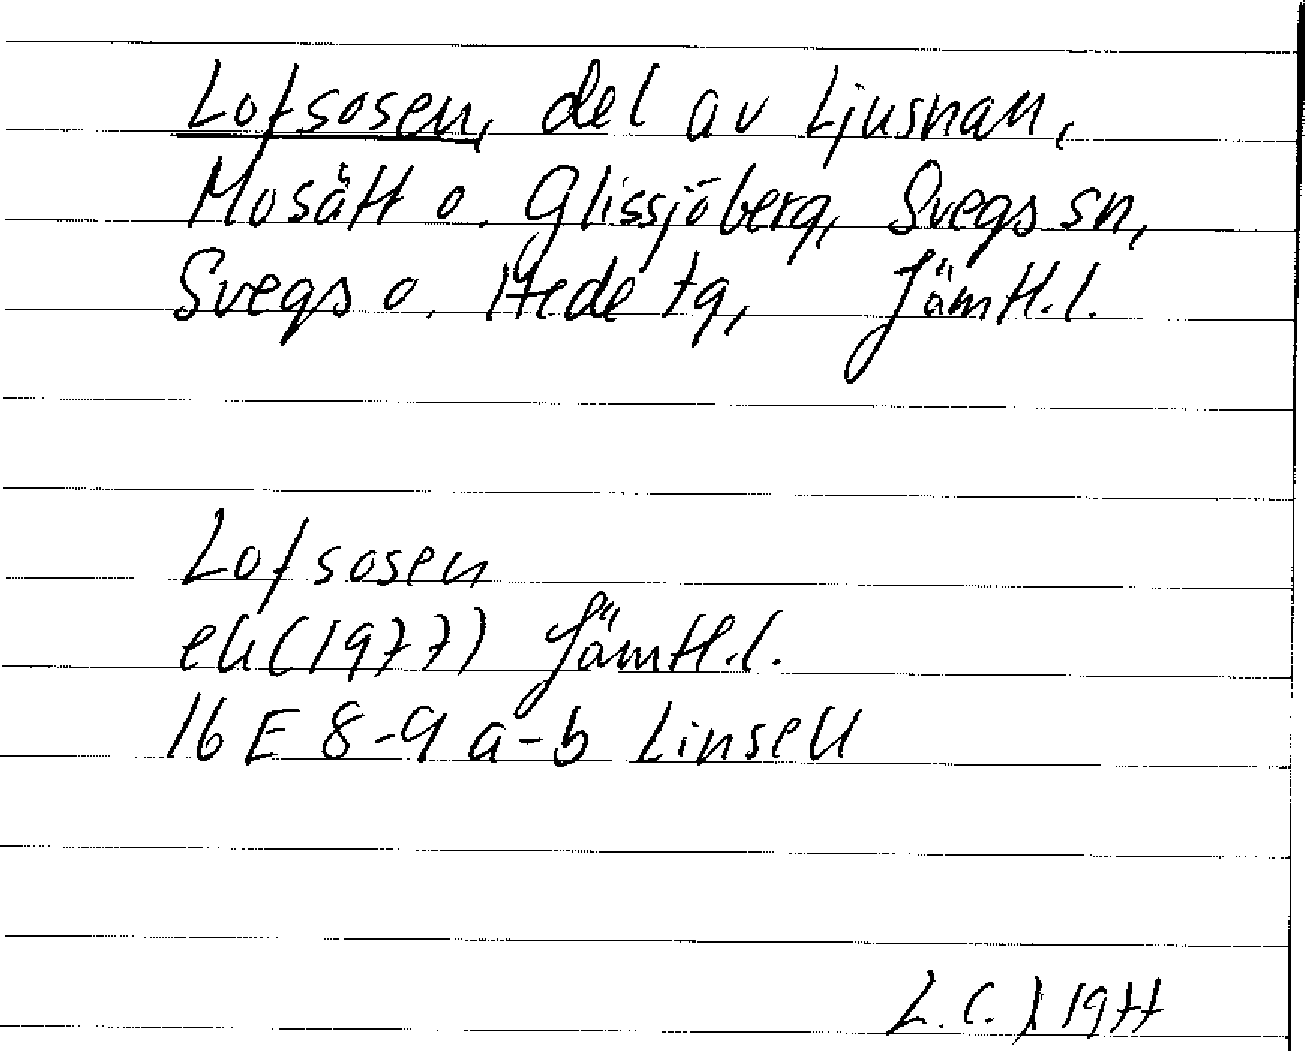 Lofsosen, del av Ljusnan,
Mosätt o. Glissjöberg, Svegs sn,
Svegs o. Hede tg, Jämtl.l.
Lofsosen
ek (1977) Jämtl.l.
16 E 8-9 a-b Linsell
L.C. 1977